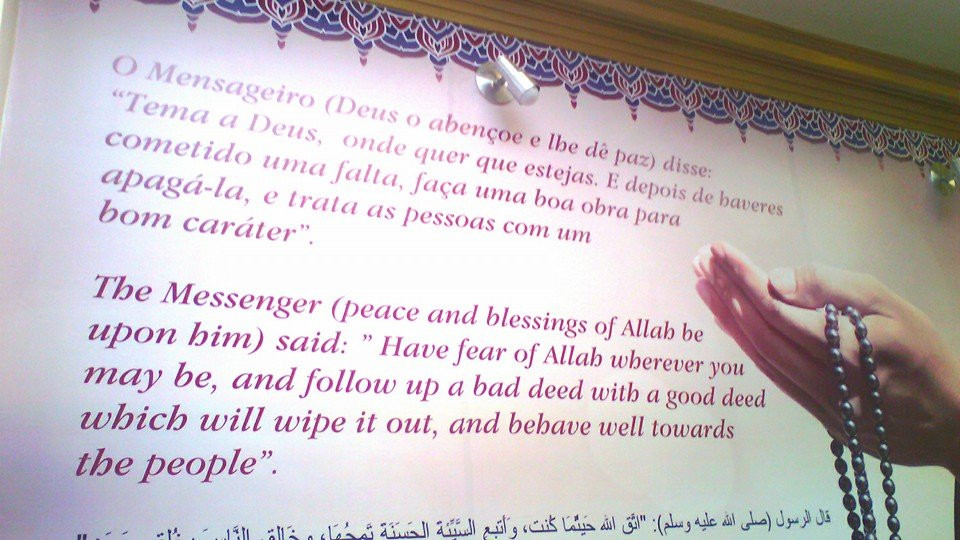 O Mensageiro (Deus o abençoe e lhe dê paz) disse:
“Tema a Deus, onde quer que estejas. E depois de haveres
cometido uma falta, faça uma boa obra para
apagá-la, e trata as pessoas com um
bom caráter”.
The Messenger (peace and blessings of Allah be
upon him) said: ” Have fear of Allah wherever you
may be, and follow up a bad deed with a good deed
which will wipe it out, and behave well towards
the people”.
قال الرسول (صلى الله عليه وسلم): "اتَّق الله حَيثُما كُنت، وَأتبع السَّيِّئة الحَسَنَة تَمحُها، وخَالِق النَّاس